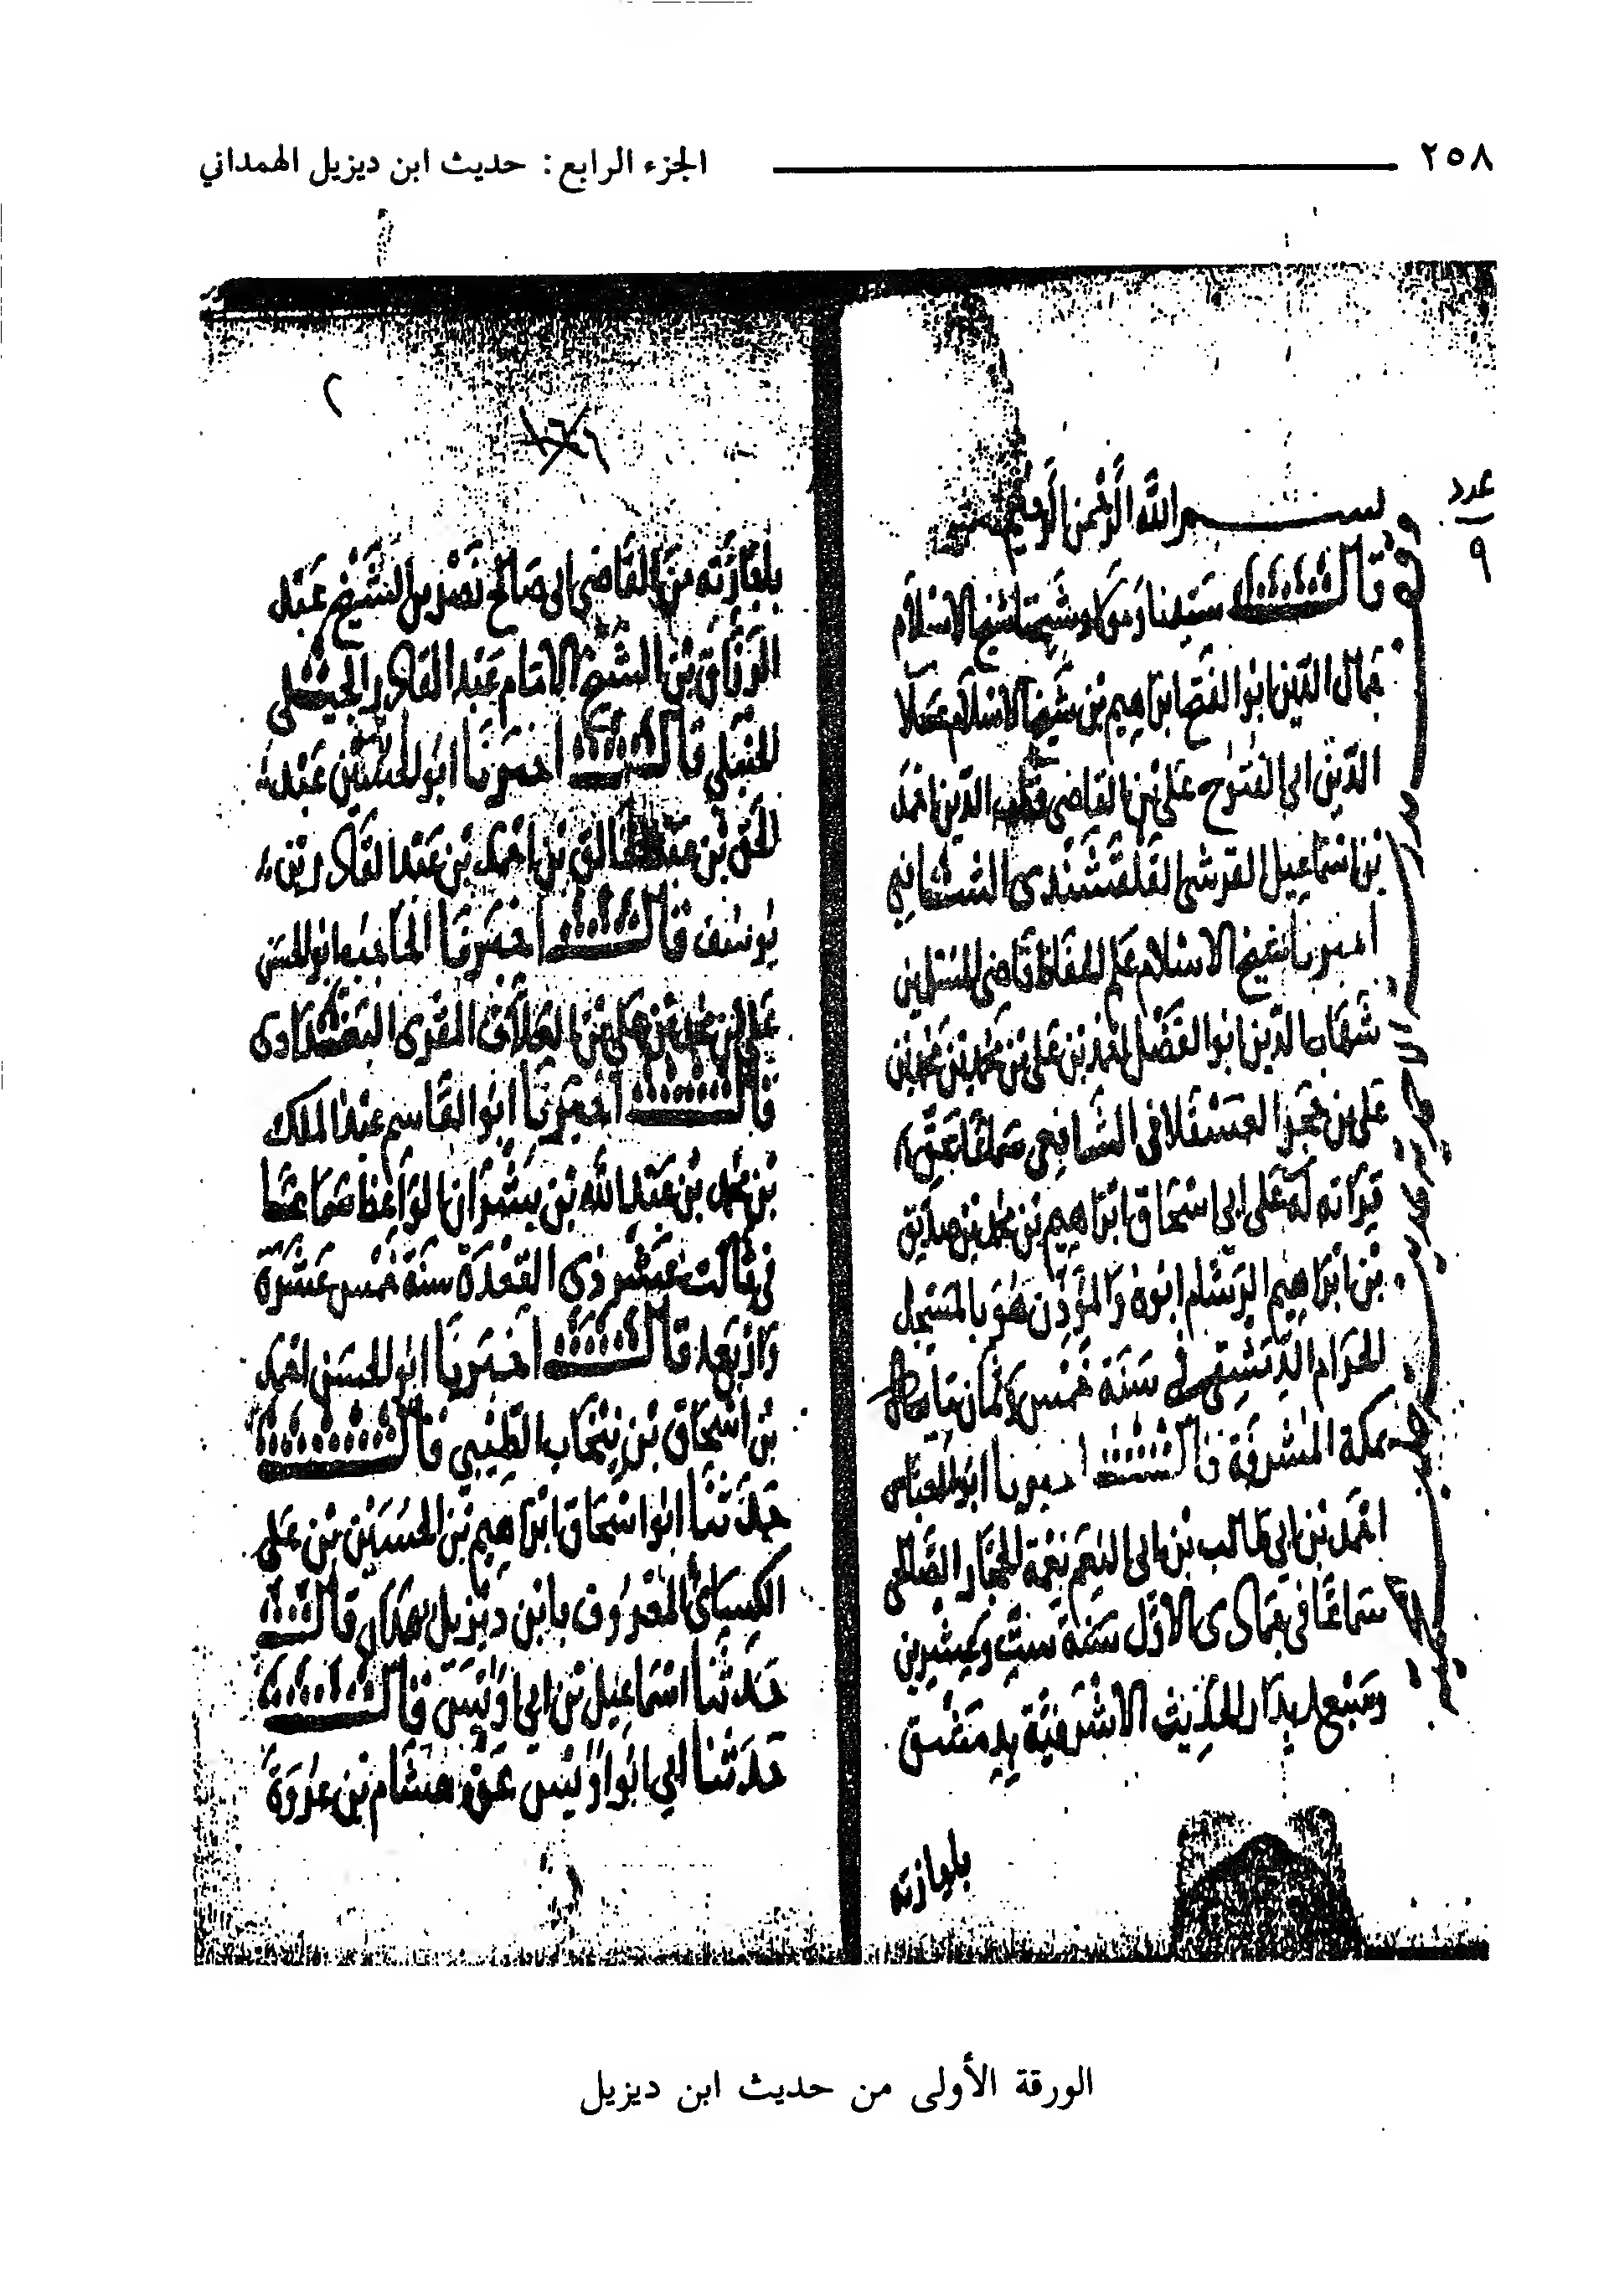 ٢٥٨ الجزء الرابع: حديث ابن ديزيل الهمداني
عدد
٩
بسم الله الرحمن الرحيم
قال سيدنا ومولانا وشيخنا شيخ الاسلام
جمال الدين ابو الفتح ابراهيم بن شيخ الاسلام علا
الدين ابي الفتوح علي بن القاضي قطب الدين احمد
بن اسماعيل القرشي القلقشندي الشافعي
اخبرنا شيخ الاسلام علم الحفاظ قاضي المسلمين
شهاب الدين ابو الفضل احمد بن علي بن محمد بن محمد بن
علي بن حجر العسقلاني الشافعي سماعا بحق
قراته له على ابي اسحاق ابراهيم بن محمد بن صديق
بن ابراهيم الرسام ابوه والمؤذن هو بالمسجد
الحرام الدمشقي في سنة خمس وثمان مايه
بمكة المشرفة قال اخبرنا ابو العباس
احمد بن ابي طالب بن ابي النعم نعمة الحجار الصالحي
سماعا في جمادى الاول سنة ست وعشرين
وسبع بدار الحديث الاشرفية بدمشق
باجازته
٢
باجازته من القاضي ابي صالح نصر بن الشيخ عبد
الرزاق بن الشيخ الامام عبد القادر الجيلي
الحنبلي قال اخبرنا ابو الحسين عبد
الحق بن عبد الخالق بن احمد بن عبد القادر بن
يوسف قال اخبرنا الحاجب ابو الحسن
علي بن محمد بن علي بن العلاف المقرى البغدادى
قال اخبرنا ابو القاسم عبد الملك
بن محمد بن عبد الله بن بشران الواعظ سماعا
في ثالث عشر ذى القعدة سنة خمس عشرة
واربع قال اخبرنا ابو الحسن احمد
بن اسحاق بن نيخاب الطيبي قال
حدثنا ابو اسحاق ابراهيم بن الحسين بن علي
الكسائي المعروف بابن ديزيل بهمذان قال
حدثنا اسماعيل بن ابي اويس قال
حدثنا ابي ابو اويس عن هشام بن عروة
الورقة الأولى من حديث ابن ديزيل